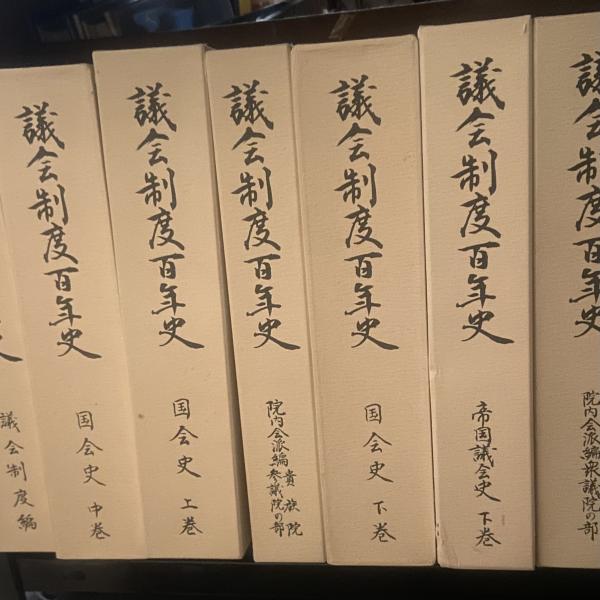 史
議会制度編
議会制度百年史
国会史 中巻
議会制度百年史
国会史 上巻
議会制度百年史
院内会派編 貴族院
参議院の部
議会制度百年史
国会史 下巻
議会制度百年史
帝国議会史 下巻
議会制度百年史
院内会派編衆議院の部